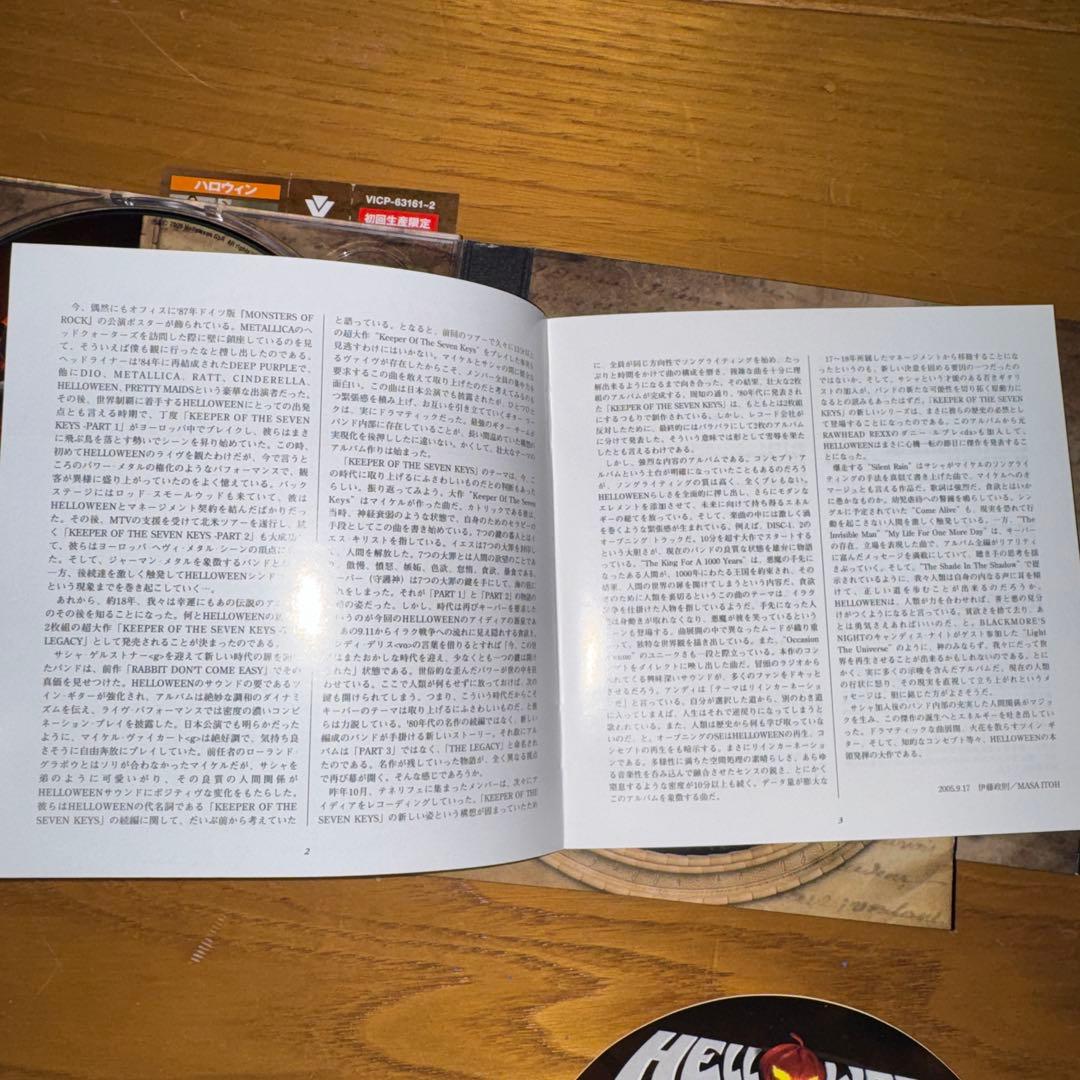 ハロウィン
VICP-63161~2
初回生産限定
今、偶然にもオフィスに'87年ドイツ版「MONSTERS OF
ROCK」の公演ポスターが飾られている。METALLICAのヘ
ッドクォーターズを訪問した際に壁に鎮座しているのを見
て、そういえば僕も観に行ったなと捜し出したのである。
ヘッドライナーは'84年に再結成されたDEEP PURPLEで、
他にDIO、METALLICA、RATT、CINDERELLA、
HELLOWEEN、PRETTY MAIDSという豪華な出演者だった。
その後、世界制覇に着手するHELLOWEENにとっての出発
点とも言える時期で、丁度「KEEPER OF THE SEVEN
KEYS -PART 1」がヨーロッパ中でブレイクし、彼らはまさ
に飛ぶ鳥を落とす勢いでシーンを昇り始めていた。この時、
初めてHELLOWEENのライヴを観たわけだが、今で言うと
ころのパワー・メタルの権化のようなパフォーマンスで、観
客が異様に盛り上がっていたのをよく憶えている。バック
ステージにはロッド・スモールウッドも来ていて、彼は
HELLOWEENとマネージメント契約を結んだばかりだった。
その後、MTVの支援を受けて北米ツアーを遂行し、続
く「KEEPER OF THE SEVEN KEYS -PART 2」も大成功
て、彼らはヨーロッパ・ヘヴィ・メタル・シーンの頂点に
た。そして、ジャーマン・メタルを象徴するバンドとな
一方、後続達を激しく触発してHELLOWEENシンド
という現象までを巻き起こしていく…。
あれから、約18年、我々は幸運にもあの伝説のア
のその後を知ることになった。何とHELLOWEENの
2枚組の超大作「KEEPER OF THE SEVEN KEYS
LEGACY」として発売されることが決まったのである。
サシャ・ゲルストナー<g>を迎えて新しい時代の扉を開
たバンドは、前作「RABBIT DON'T COME EASY」でその
真価を見せつけた。HELLOWEENのサウンドの要であるツ
イン・ギターが強化され、アルバムは絶妙な調和のダイナミ
ズムを伝え、ライヴ・パフォーマンスでは密度の濃いコンビ
ネーション・プレイを披露した。日本公演でも明らかだった
ように、マイケル・ヴァイカート<g>は絶好調で、気持ち良
さそうに自由奔放にプレイしていた。前任者のローランド・
グラポウとはソリが合わなかったマイケルだが、サシャを
弟のように可愛いがり、その良質の人間関係が
HELLOWEENサウンドにポジティヴな変化をもたらした。
彼らはHELLOWEENの代名詞である「KEEPER OF THE
SEVEN KEYS」の続編に関して、だいぶ前から考えていた
と語っている。となると、前回のツアーで久々に13分以上
の超大作 "Keeper Of The Seven Keys" をプレイした事実も
見逃すわけにはいかない。マイケルとサシャの間に
要求するこの曲を敢えて取り上げたのだと考えてみるのも
面白い。この曲は日本公演でも披露されたが、ひとつひと
つ緊張感を積み上げ、お互いを引き立てていくギター・ワー
クは、実にドラマティックだった。最強のギター・チームが
バンド内部に存在していることが、長い間温めていた構想の
実現化を後押ししたに違いない。かくして、壮大なテーマの
アルバム作りは始まった。
「KEEPER OF THE SEVEN KEYS」のテーマは、今、こ
の時代に取り上げるにふさわしいものだとの判断もあった
らしい。振り返ってみよう。大作 "Keeper Of The Seven
Keys" はマイケルが作った曲だ。カトリックである彼は
当時、神経衰弱のような状態で、自身のためのセラピーの
手段としてこの曲を書き始めている。7つの鍵の番人とはイ
エス・キリストを指している。イエスは7つの大罪を
人間を解放した。7つの大罪とは人間の欲望のことであ
傲慢、憤怒、嫉妬、色欲、怠惰、貪欲、暴食である。
ーパー（守護神）は7つの大罪の鍵を手にして、海の底に
れをしまった。それが「PART 1」と「PART 2」の物語の
の姿だった。しかし、時代は再びキーパーを
いうのが今回のHELLOWEENのアイディアの源泉で
あの9.11からイラク戦争への流れに見え隠れする
ンディ・デリス<vo>の言葉を借りるとすれば「今、この世
はまたおかしな時代を迎え、少なくとも一つの鍵は開か
た」状態である。世俗的な歪んだパワーが世の中を
わせている。ここで人類が何もせずに放っておけば、次の
鍵も開けられてしまう。つまり、こういう時代だからこそ
キーパーのテーマは取り上げるにふさわしいものだ、と彼
らは力説している。'80年代の名作の続編ではなく、新しい
編成のバンドが手掛ける新しいストーリー。それ故にアル
バムは「PART 3」ではなく、「THE LEGACY」と命名され
たのである。名作が残していった物語が、全く異なる視点
で再び幕が開く。そんな感じであろうか。
昨年10月、テネリフェに集まったメンバーは、次々にア
イディアをレコーディングしていった。「KEEPER OF THE
SEVEN KEYS」の新しい姿という構想が固まっていたため
2
に、全員が同じ方向性でソングライティングを始め、たっ
ぷりと時間をかけて曲の構成を磨き、複雑な曲を十分に理
解出来るようになるまで向き合った。その結果、壮大な2枚
組のアルバムが完成する。周知の通り、'80年代に発表され
た「KEEPER OF THE SEVEN KEYS」は、もともとは2枚組
にするつもりで制作されている。しかし、レコード会社が
反対したために、最終的にはバラバラにして2枚のアルバム
に分けて発表した。そういう意味では形として雪辱を果た
したとも言えるわけである。
しかし、強烈な内容のアルバムである。コンセプト・ア
ルバムという土台が明確になっていたこともあるのだろう
が、ソングライティングの質は高く、全くブレもない。
HELLOWEENらしさを全面的に押し出し、さらにモダンな
エレメントを添加させて、未来に向けて持ち得るエネル
ギーの総てを放っている。そして、楽曲の中には激しく渦
を巻くような緊張感が生まれている。例えば、DISC-1、2の
オープニング・トラックだ。10分を超す大作でスタートする
という大胆さが、現在のバンドの良質な状態を雄弁に物語
っている。"The King For A 1000 Years" は、悪魔の手先に
なったある人間が、1000年にわたる王国を約束され、その
結果、人間の世界の扉を開けてしまうという内容だ。貪欲
のために人類を裏切るというこの曲のテーマは、イラク
争を仕掛けた人物を指しているようだ。手先になった人
は身動きが取れなくなり、悪魔が彼を笑っているという
ーンも登場する。曲展開の中で異なったムードが織り重
って、独特な世界観を描き出している。また、"Occasion
venue" のユニークさも一段と際立っている。本作のコン
プトをダイレクトに映し出した曲だ。冒頭のラジオから
れてくる興味深いサウンドが、多くのファンをドキッと
させるだろう。アンディは「テーマはリインカーネーショ
だ」と言っている。自分が選択した道から、別のわき道
に入ってしまえば、人生はそれで逆戻りになってしまうと
歌われている。また、人類は歴史から何も学び取っていな
いのだ、と。オープニングのSEはHELLOWEENの再生、コ
ンセプトの再生をも暗示する。まさにリインカーネーショ
ンである。多様性に満ちた空間処理の素晴らしさ、あらゆ
る音楽性を呑み込んで融合させたセンスの鋭さ、とにかく
窒息するような密度が10分以上も続く。データ量が膨大な
このアルバムを象徴する曲だ。
17〜18年所属したマネージメントから移籍することにな
ったというのも、新しい決意を固める要因の一つだったの
ではないか。そして、サシャという才媛のある若きギタリ
ストの加入が、バンドの新たな可能性を切り拓く原動力に
なるとの読みもあったはずだ。「KEEPER OF THE SEVEN
KEYS」の新しいシリーズは、まさに彼らの歴史の必然とし
て登場することになったのである。このアルバムから元
RAWHEAD REXXのダニ・ルブレ<ds>も加入して、
HELLOWEENはまさに心機一転の節目に傑作を発表するこ
とになった。
爆走する "Silent Rain" はサシャがマイケルのソングライ
ティングの手法を真似て書き上げた曲で、マイケルへのオ
マージュとも言える作品だ。歌詞は強烈だ。貪欲とはいか
に愚かなものか。幼児虐待への警鐘を鳴らしている。シン
グルに予定されていた "Come Alive" も、現実を恐れて行
動を起こさない人間を激しく触発している。一方、"The
Invisible Man" "My Life For One More Day" は、キーパー
の存在、立場を表現した曲で、アルバム全編がリアリティ
に富んだメッセージを満載にしていて、聴き手の思考を揺
さぶっていく。そして、"The Shade In The Shadow" で提
示されているように、我々人類は自身の内なる声に耳を傾
けて、正しい道を歩むことが出来るのだろうか。
HELLOWEENは、人類が力を合わせれば、善と悪の見分け
がつくようになると言っている。貪欲さを捨て去り、あ
とは勇気さえあればいいのだ、と。BLACKMORE'S
NIGHTのキャンディス・ナイトがゲスト参加した "Light
The Universe" のように、神のみならず、我々にだって世
界を再生させることが出来るかもしれないのである。とに
かく、実に多くの示唆を含んだアルバムだ。現在の人類
の状況に怒り、その現実を直視して立ち上がれというメ
ッセージは、胆に銘じた方がよさそうだ。
サシャ加入後のバンド内部の充実した人間関係がマジッ
クを生み、この傑作の誕生へとエネルギーを吐き出してい
った。ドラマティックな曲展開、火花を散らすツイン・ギ
ター、そして、知的なコンセプト等々、HELLOWEENの本
領発揮の大作である。
2005.9.17 伊藤政則／MASA ITOH
3
HELLOWEEN